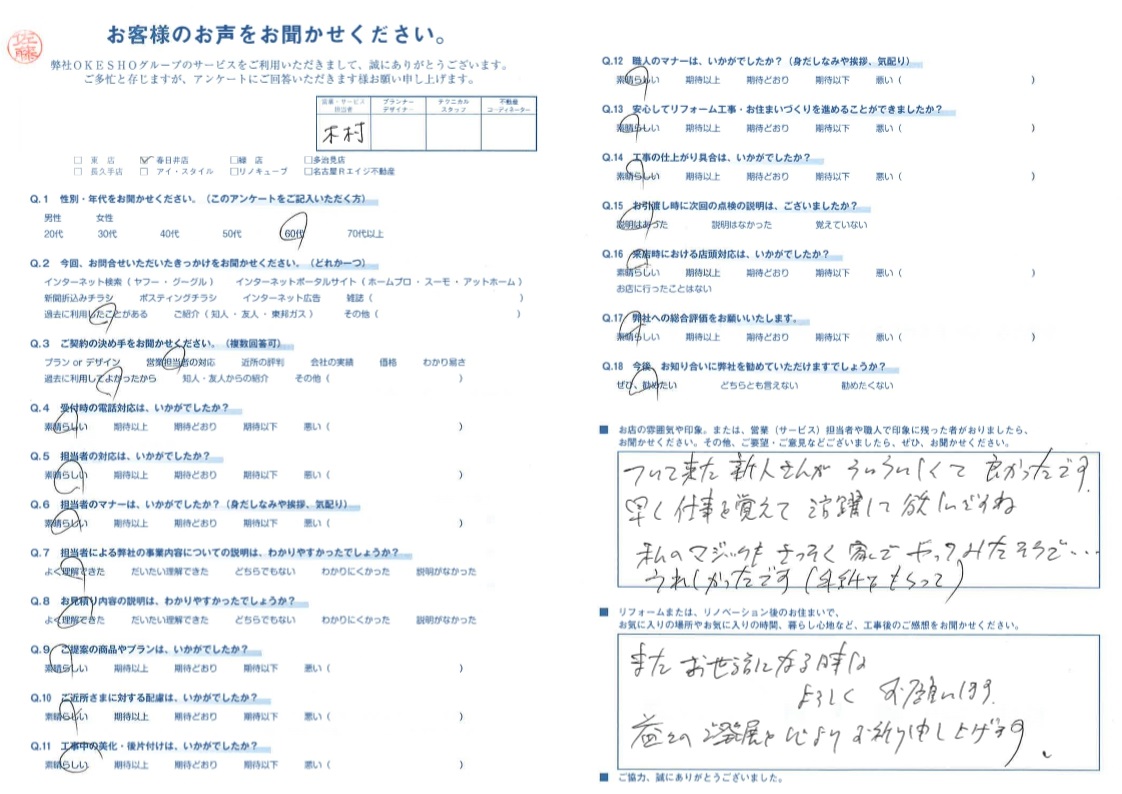 佐藤
お客様のお声をお聞かせください。
弊社OKESHOグループのサービスをご利用いただきまして、誠にありがとうございます。
ご多忙と存じますが、アンケートにご回答いただきます様お願い申し上げます。
営業・サービス担当者 プランナーデザイナー テクニカルスタッフ 不動産コーディネーター
木村
□ 東 店 ☑ 春日井店 □緑 店 □多治見店
□ 長久手店 □ アイ・スタイル □リノキューブ □名古屋Rエイジ不動産
Q.1 性別・年代をお聞かせください。（このアンケートをご記入いただく方）
男性 女性
20代 30代 40代 50代 60代 70代以上
Q.2 今回、お問合せいただいたきっかけをお聞かせください。（どれか一つ）
インターネット検索（ ヤフー ・ グーグル ） インターネットポータルサイト（ ホームプロ ・ スーモ ・ アットホーム ）
新聞折込みチラシ ポスティングチラシ インターネット広告 雑誌（ ）
過去に利用したことがある ご紹介（ 知人 ・ 友人 ・ 東邦ガス ） その他（ ）
Q.3 ご契約の決め手をお聞かせください。（複数回答可）
プラン or デザイン 営業担当者の対応 近所の評判 会社の実績 価格 わかり易さ
過去に利用してよかったから 知人・友人からの紹介 その他（ ）
Q.4 受付時の電話対応は、いかがでしたか？
素晴らしい 期待以上 期待どおり 期待以下 悪い（ ）
Q.5 担当者の対応は、いかがでしたか？
素晴らしい 期待以上 期待どおり 期待以下 悪い（ ）
Q.6 担当者のマナーは、いかがでしたか？（身だしなみや挨拶、気配り）
素晴らしい 期待以上 期待どおり 期待以下 悪い（ ）
Q.7 担当者による弊社の事業内容についての説明は、わかりやすかったでしょうか？
よく理解できた だいたい理解できた どちらでもない わかりにくかった 説明がなかった
Q.8 お見積り内容の説明は、わかりやすかったでしょうか？
よく理解できた だいたい理解できた どちらでもない わかりにくかった 説明がなかった
Q.9 ご提案の商品やプランは、いかがでしたか？
素晴らしい 期待以上 期待どおり 期待以下 悪い（ ）
Q.10 ご近所さまに対する配慮は、いかがでしたか？
素晴らしい 期待以上 期待どおり 期待以下 悪い（ ）
Q.11 工事中の美化・後片付けは、いかがでしたか？
素晴らしい 期待以上 期待どおり 期待以下 悪い（ ）
Q.12 職人のマナーは、いかがでしたか？（身だしなみや挨拶、気配り）
素晴らしい 期待以上 期待どおり 期待以下 悪い（ ）
Q.13 安心してリフォーム工事・お住まいづくりを進めることができましたか？
素晴らしい 期待以上 期待どおり 期待以下 悪い（ ）
Q.14 工事の仕上がり具合は、いかがでしたか？
素晴らしい 期待以上 期待どおり 期待以下 悪い（ ）
Q.15 お引渡し時に次回の点検の説明は、ございましたか？
説明はあった 説明はなかった 覚えていない
Q.16 来店時における店頭対応は、いかがでしたか？
素晴らしい 期待以上 期待どおり 期待以下 悪い（ ）
お店に行ったことはない
Q.17 弊社への総合評価をお願いいたします。
素晴らしい 期待以上 期待どおり 期待以下 悪い（ ）
Q.18 今後、お知り合いに弊社を勧めていただけますでしょうか？
ぜひ、勧めたい どちらとも言えない 勧めたくない
■ お店の雰囲気や印象。または、営業（サービス）担当者や職人で印象に残った者がおりましたら、
お聞かせください。その他、ご要望・ご意見などございましたら、ぜひ、お聞かせください。
ついて来た新人さんが ういういしくて 良かったです
早く仕事を覚えて 活躍して 欲しいですね
私のマジックも さっそく 家で やってみたそうで…
うれしかったです（休
■ リフォームまたは、リノベーション後のお住まいで、
お気に入りの場所やお気に入りの時間、暮らし心地など、工事後のご感想をお聞かせください。
また お世話になる時は
よろしく お願いします
益々の ご発展を 心より お祈り申し上げます。
■ ご協力、誠にありがとうございました。